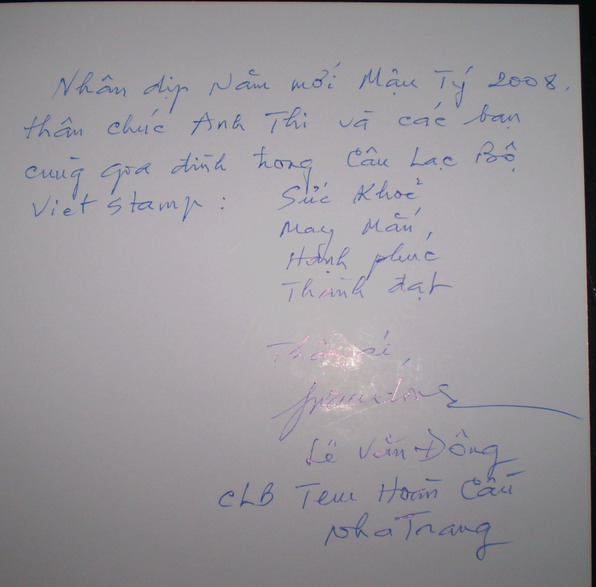 Nhân dịp Năm mới Mậu Tý 2008.
thân chúc Anh Thi và các bạn
cùng gia đình trong Câu Lạc Bộ
Viet Stamp : Sức Khoẻ
May Mắn,
Hạnh phúc
Thành đạt
Thân ái,
Lê Văn Đông
CLB Tem Hoàn Cầu
Nha Trang